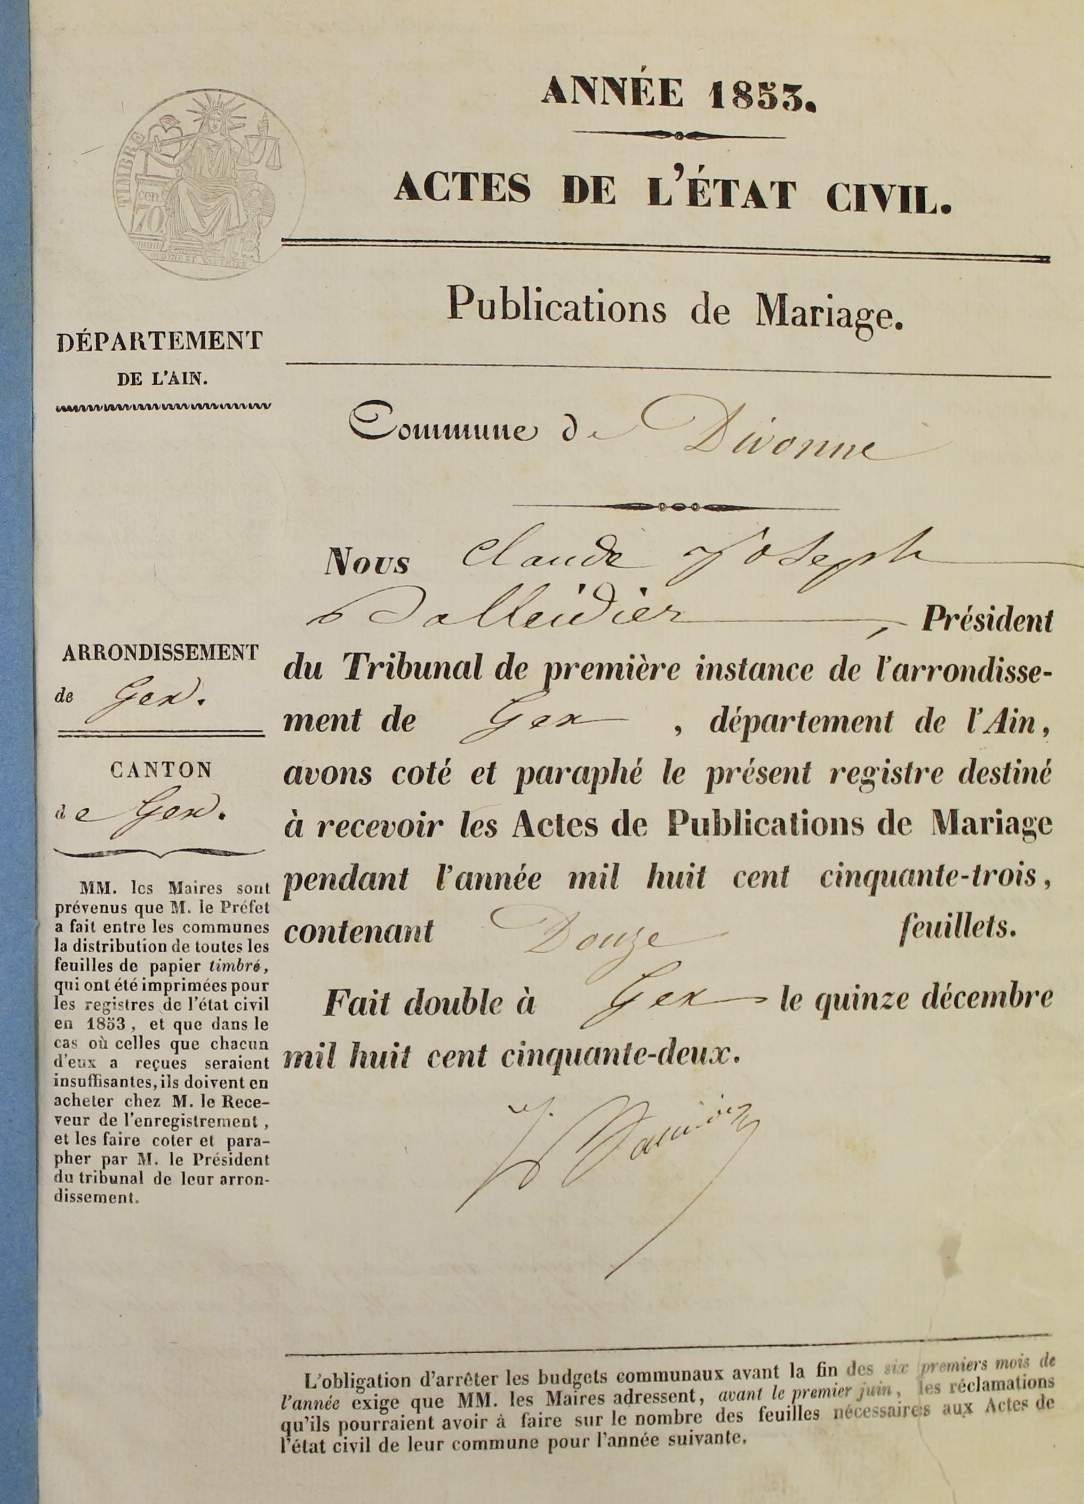 ANNÉE 1853.
ACTES DE L'ÉTAT CIVIL.
TIMBRE
CEN.
70
Publications de Mariage.
DÉPARTEMENT
DE L'AIN.
Commune de Divonne
Nous Claude Joseph
, Président
du Tribunal de première instance de l'arrondisse-
ment de Gex , département de l'Ain,
avons coté et paraphé le présent registre destiné
à recevoir les Actes de Publications de Mariage
pendant l'année mil huit cent cinquante-trois,
contenant Douze feuillets.
Fait double à Gex le quinze décembre
mil huit cent cinquante-deux.
ARRONDISSEMENT
de Gex.
CANTON
de Gex.
MM. les Maires sont
prévenus que M. le Préfet
a fait entre les communes
la distribution de toutes les
feuilles de papier timbré,
qui ont été imprimées pour
les registres de l'état civil
en 1853, et que dans le
cas où celles que chacun
d'eux a reçues seraient
insuffisantes, ils doivent en
acheter chez M. le Rece-
veur de l'enregistrement,
et les faire coter et para-
pher par M. le Président
du tribunal de leur arron-
dissement.
L'obligation d'arrêter les budgets communaux avant la fin des six premiers mois de
l'année exige que MM. les Maires adressent, avant le premier juin, les réclamations
qu'ils pourraient avoir à faire sur le nombre des feuilles nécessaires aux Actes de
l'état civil de leur commune pour l'année suivante.